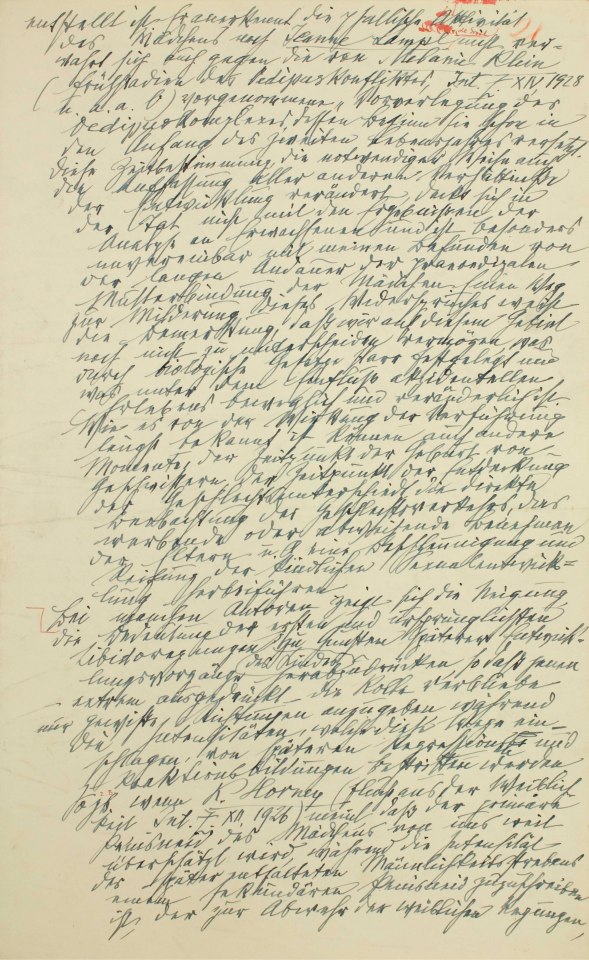 entstellt ist. Fr anerkennt die phallische Aktivität
des Mädchens nach Jeanne Lampl und ver-
wahrt sich auch gegen die von Melanie Klein
(Frühstadien des Oedipuskonfliktes, Int Z XIV 1928
u. a. a. O) vorgenommene „Vorverlegung des
Oedipuskomplexes, dessen Beginn sie schon in
den Anfang des zweiten Lebensjahres versetzt.
Diese Zeitbestimmung, die notwendigerweise auch
die Auffassung aller anderen Verhältnisse
der Entwicklung verändert, deckt sich in
der Tat nicht mit den Ergebnissen der
Analyse an Erwachsenen und ist besonders
unvereinbar mit meinen Befunden von
der langen Andauer der praeoedipalen
Mutterbindung der Mädchen. Einen Weg
zur Milderung dieses Widerspruches weist
die Bemerkung, daß wir auf diesem Gebiet
noch nicht zu unterscheiden vermögen was
durch biologische Gesetze starr festgelegt und
was unter dem Einfluß akzidentellen
Erlebens beweglich und veränderlich ist.
Wie es von der Wirkung der Verführung
längst bekannt ist können auch andere
Momente, der Zeitpunkt der Geburt von
Geschwistern, der Zeitpunkt der Entdeckung
des Geschlechtsunterschieds, die direkte
Beobachtung des Geschlechtsverkehrs, das
werbende oder abweisende Benehmen
der Eltern u. a eine Beschleunigung und
Reifung der kindlichen Sexualentwick-
lung herbeiführen.
Bei manchen Autoren zeigt sich die Neigung
die Bedeutung der ersten und ursprünglichsten
Libidoregungen zu Gunsten späterer Entwick-
lungsvorgänge herabzudrücken, so daß jenen
des Kindes
extrem ausgedrückt die Rolle verbliebe
nur gewisse Richtungen anzugeben während
die Intensitäten, welche diese Wege ein-
schlagen, von späteren Regressionen und
Reaktionsbildungen bestritten werden
So zb. wenn K. Horney (Flucht aus der Weiblich
keit Int. Z XII, 1926) meint daß der primäre
Penisneid des Mädchens von uns weit
überschätzt wird, während die Intensität
des später entfalteten Männlichkeitsstrebens
einem sekundären Penisneid zuzuschreiben
ist, der zur Abwehr der weiblichen Regungen,